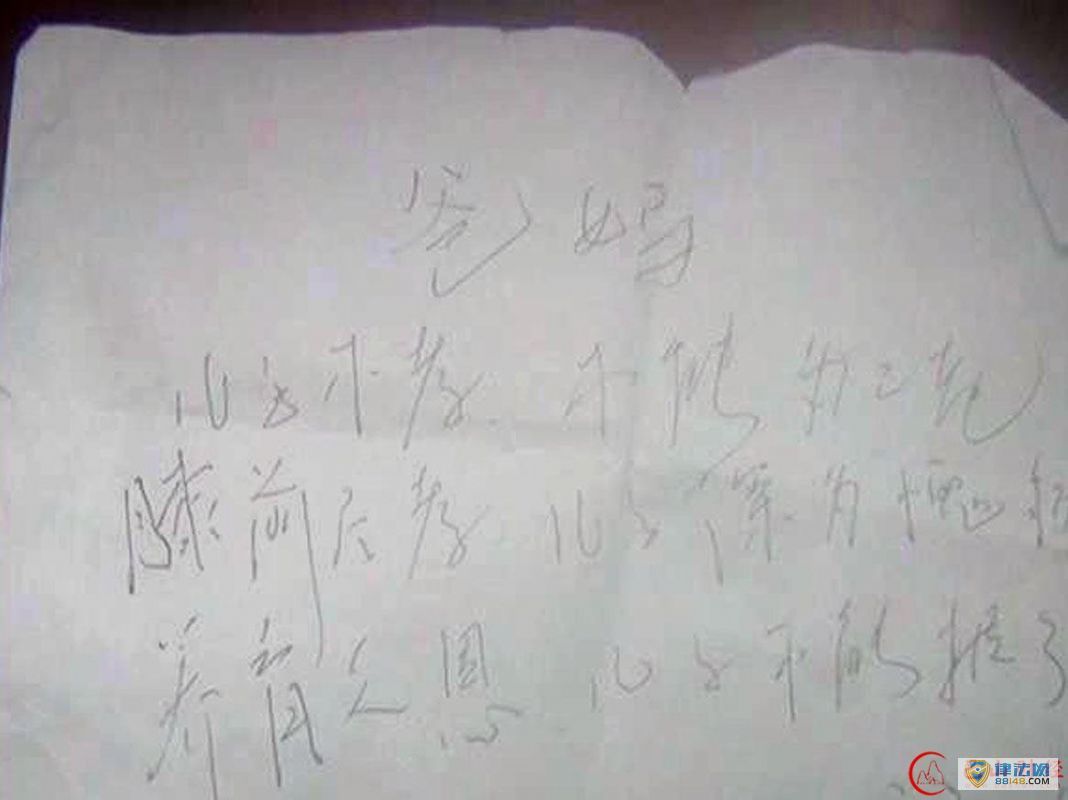 爸妈
儿子不孝.不能为二老
膝前尽孝.儿子深为愧
养育之恩 儿子不能报了
律法网
88148.com